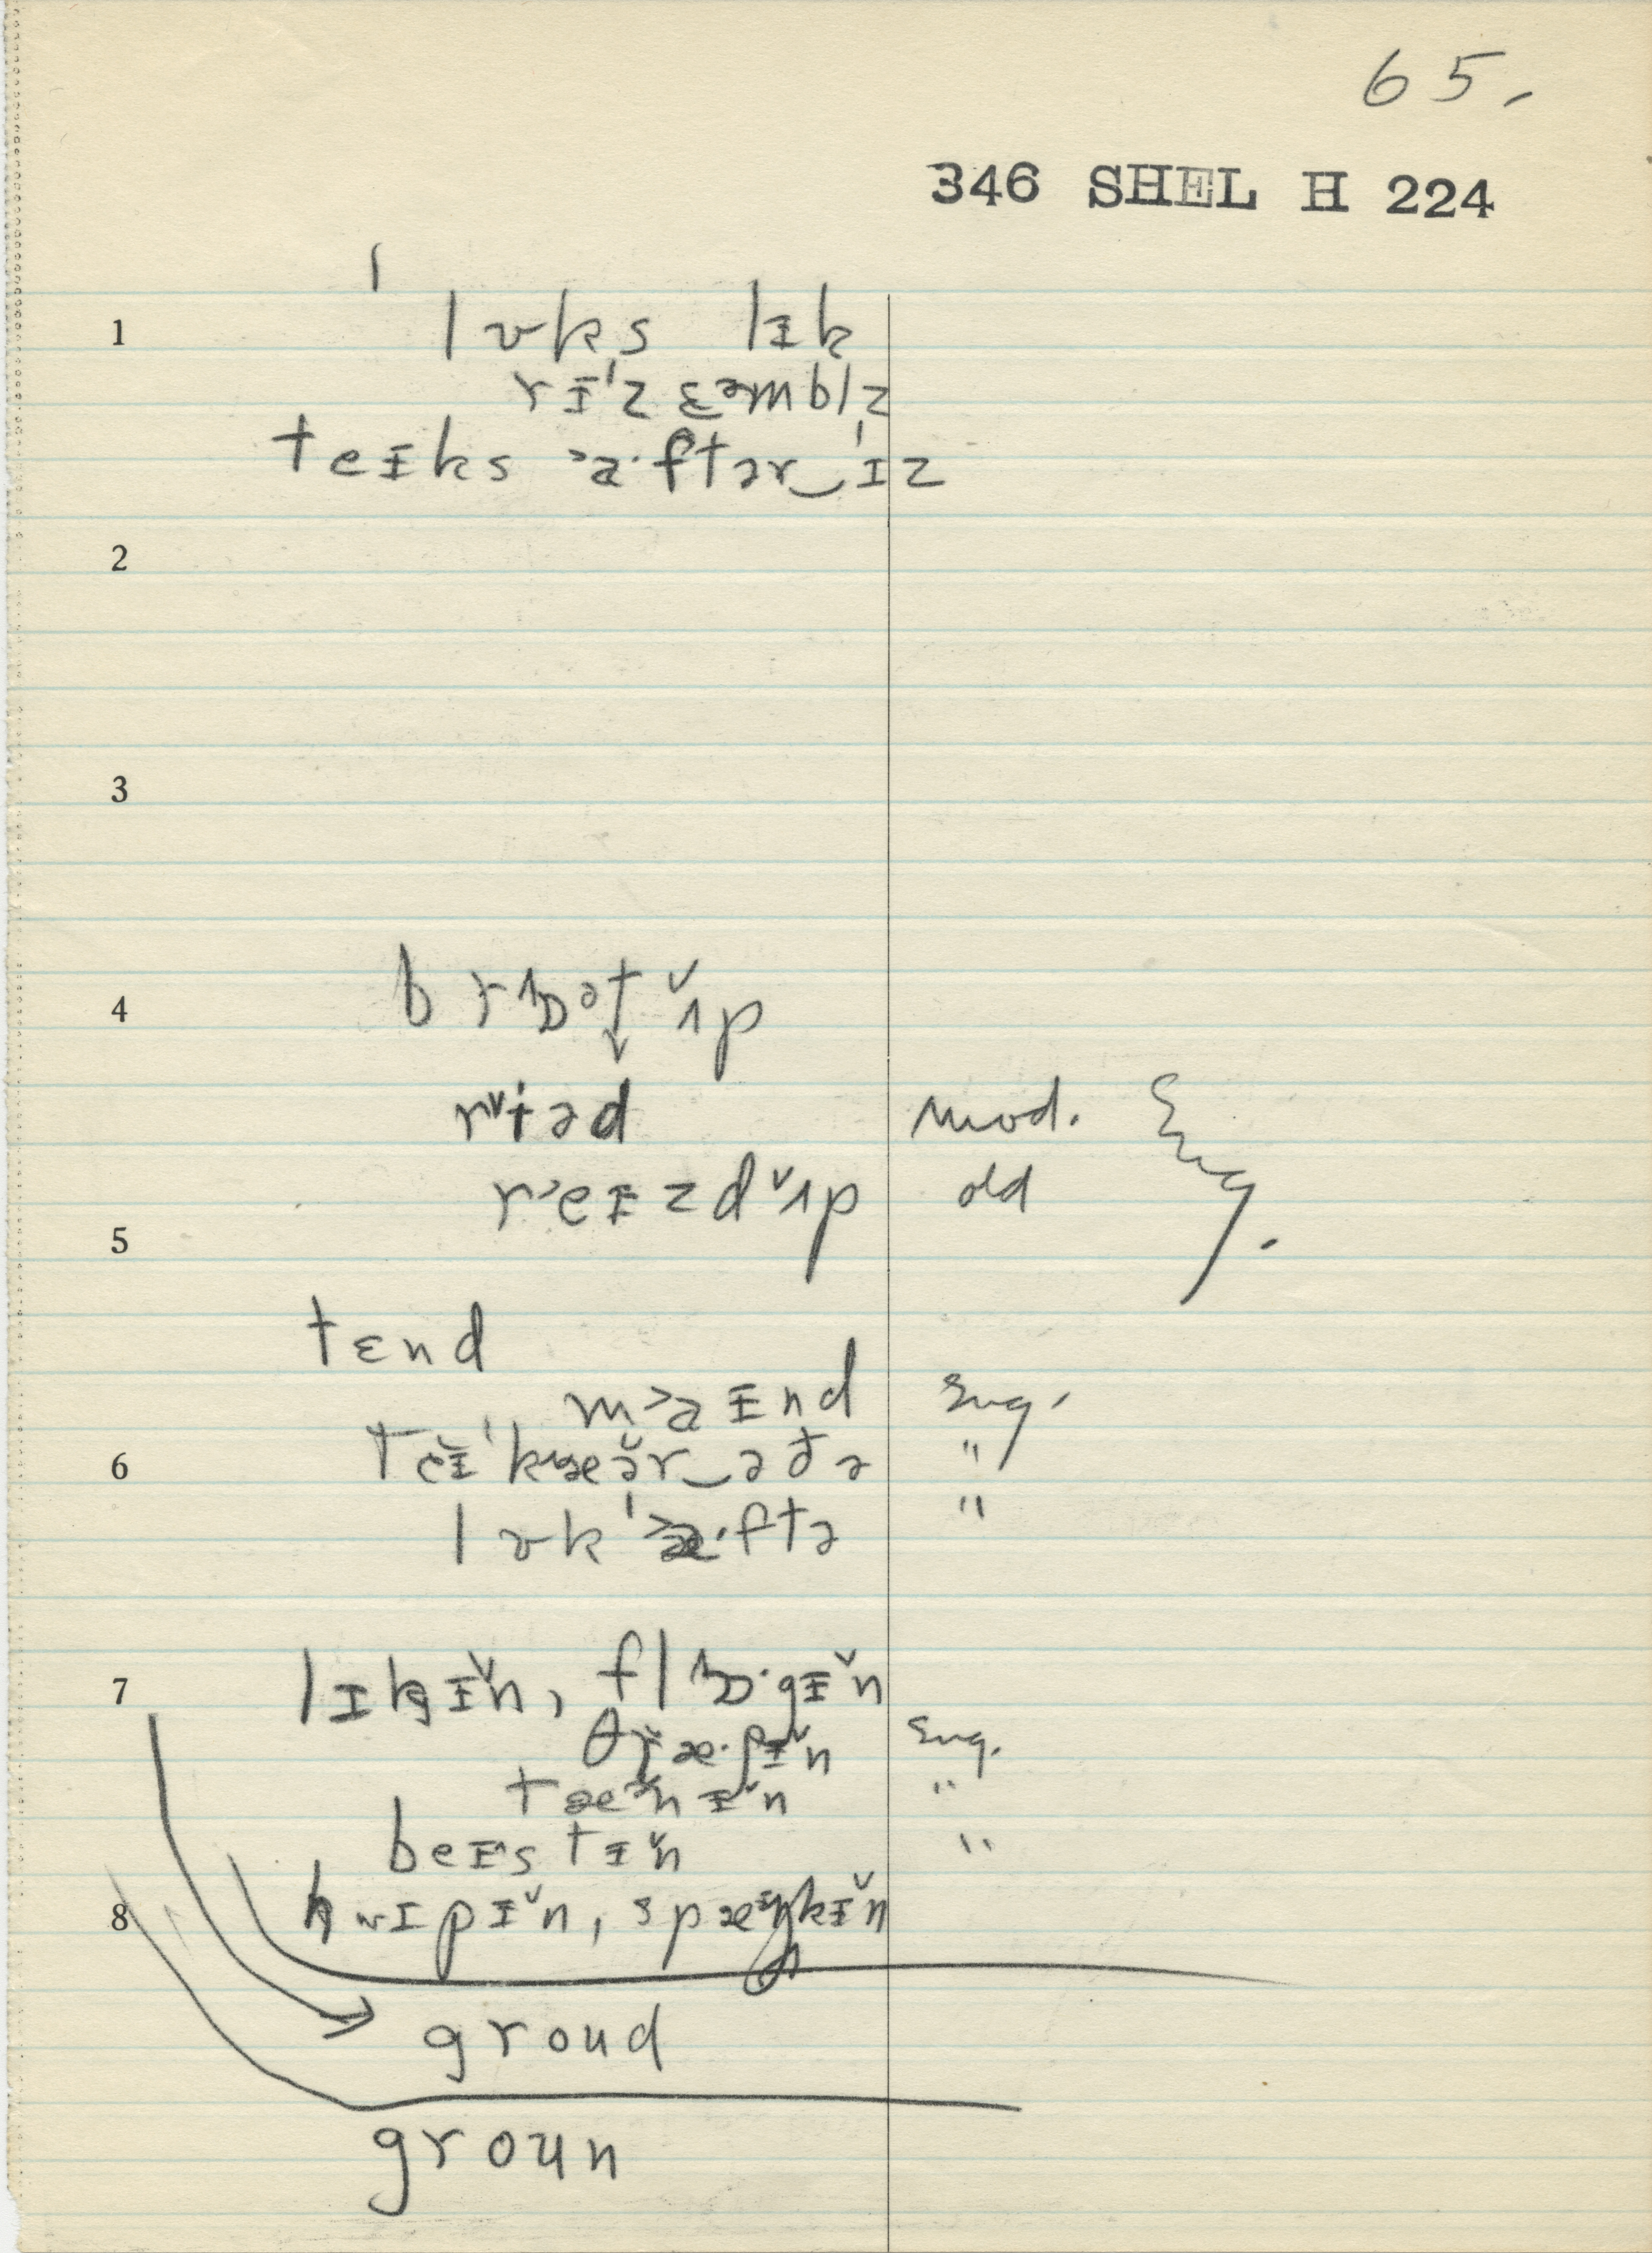 65.
346 SHEL H 224
1 lʊks lɪk
rɪ'zɛəmblz
teɪks ˃a·ftər‿'ɪz
2
3
4 brɒət ʌ̌p
rᵛiəd mod. Eng.
r˃eɪzdᵛʌp old
5
tɛnd
m˃aɪnd Eng.
6 teɪ'kæər‿ədə "
lʊk'˃a·ftə "
7 lɪkɪ̌n, flɒ·gɪ̌n
θræ·ʃɪ̌n Eng.
tænɪ̌n "
beɪstɪ̌n "
8 hwɪpɪ̌n, spæŋkɪ̌n
groud
groun